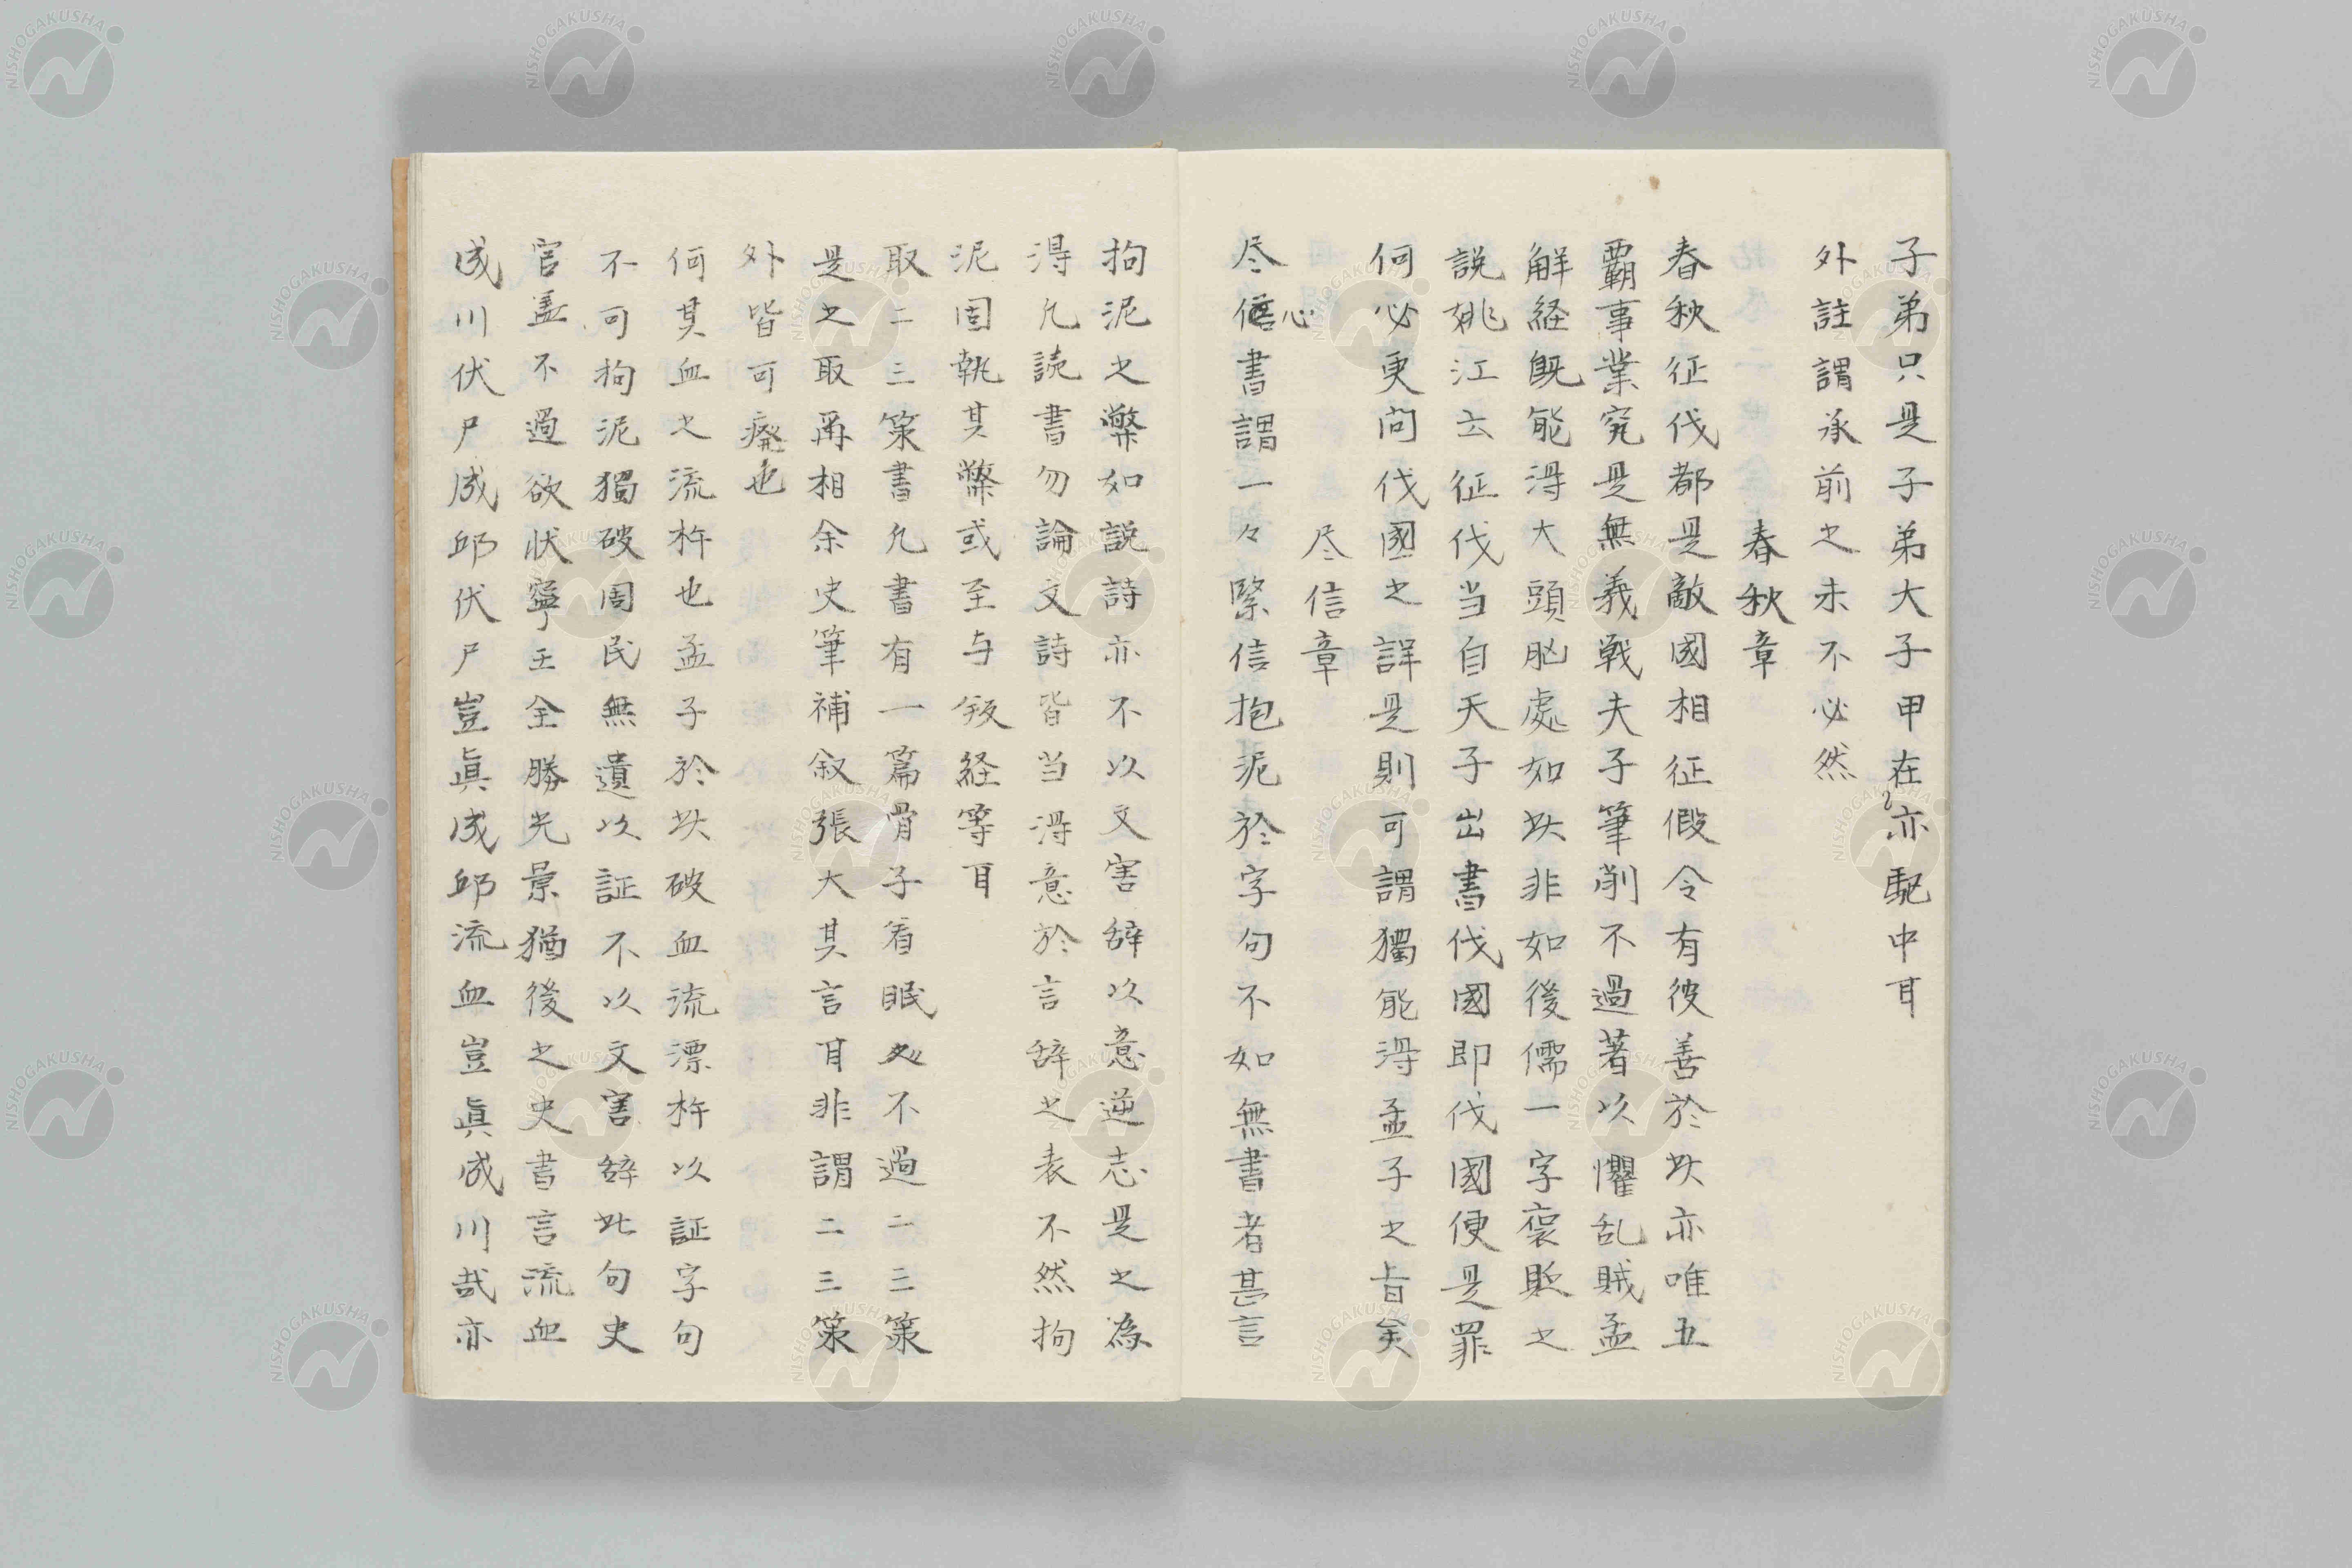 子弟只是子弟大子甲在亦馳中耳
外註謂承前之未不必然
春秋章
春秋征伐都是敵國相征假令有彼善於此亦唯五
覇事業究是無義戦夫子筆削不過著以懼乱賊孟
解経既能得大頭脳處如此非如後儒一字褒貶之
説姚江云征伐当自天子出書伐國即伐國便是罪
何必更问伐國之詳是則可謂獨能得孟子之旨矣
尽信章
尽信書謂一々緊信抱泥於字句不如無書者甚言
心
拘泥之弊如説詩亦不以文害辞以意逆志是之為
得凢読書勿論文詩皆当得意於言辞之表不然拘
泥固執其弊或至与叛経等耳
取二三策書凢書有一篇骨子着眠処不過二三策
是之取爾相余史筆補叙張大其言耳非謂二三策
外皆可癈也
何其血之流杵也孟子於此破血流漂杵以証字句
不可拘泥獨破周民無遺以証不以文害辞此句史
官盖不過欲状寧王全勝光景猶後之史書言流血
成川伏尸成邱伏尸豈真成邱流血豈真成川哉亦
NISHOGAKUSHA